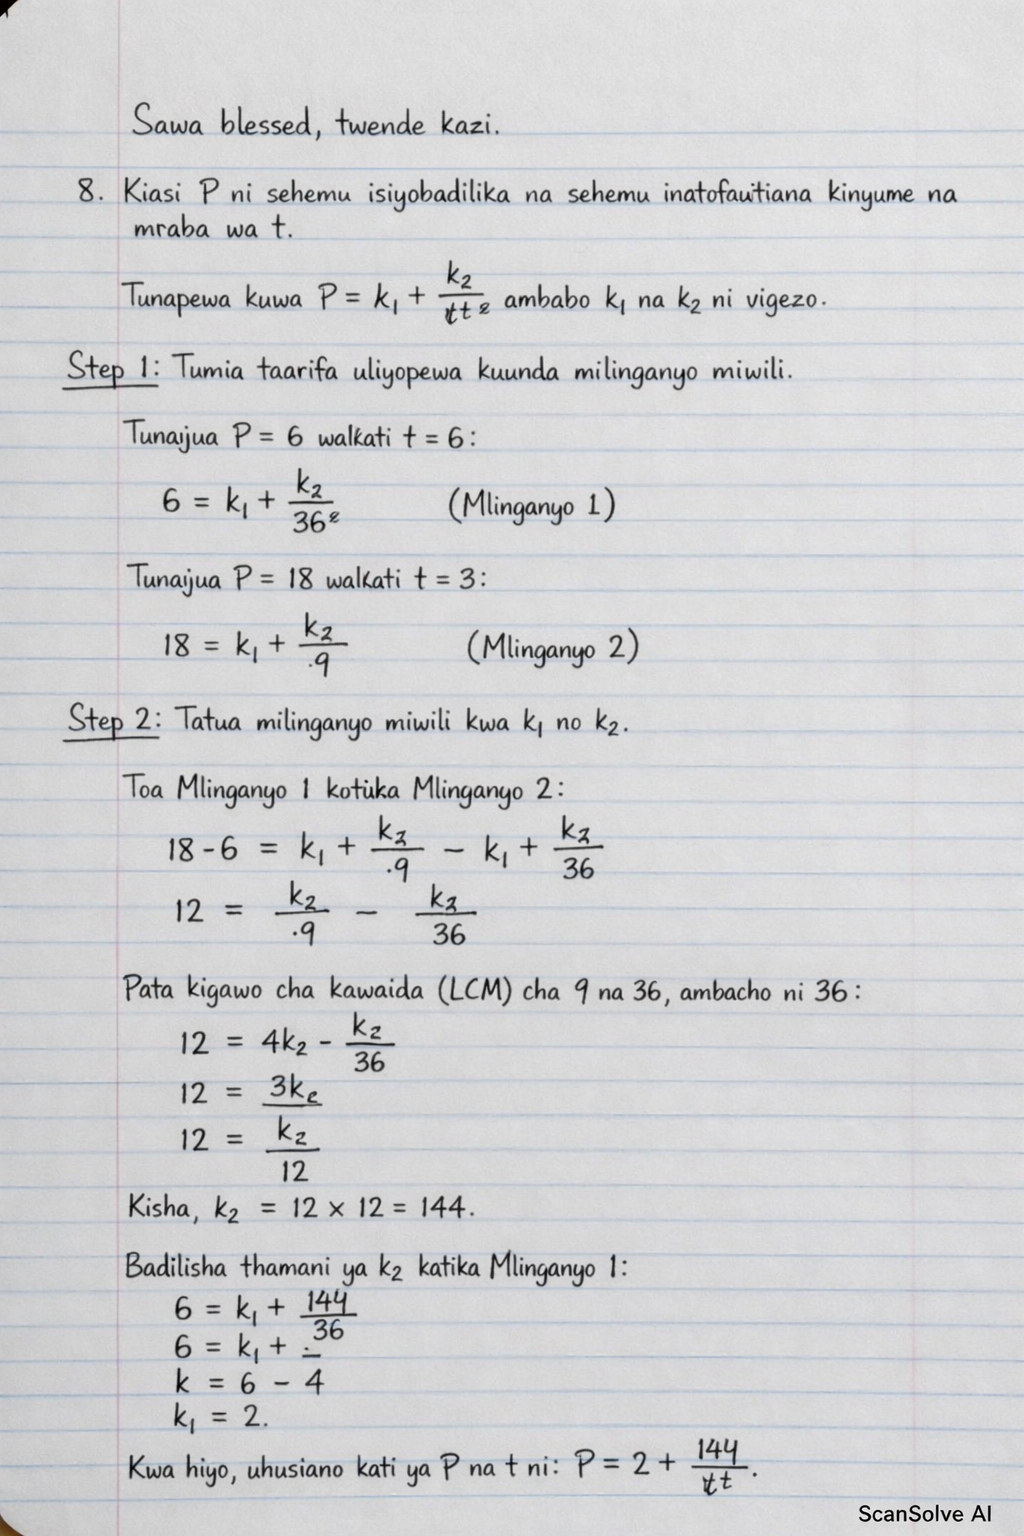 Sawa blessed, twende kazi.
8. Kiasi P ni sehemu isiyobadilika na sehemu inatofautiana kinyume na
mraba wa t.
Tunapewa kuwa P = k₁ + k₂/tt² ambabo k₁ na k₂ ni vigezo.
Step 1: Tumia taarifa uliyopewa kuunda milinganyo miwili.
Tunaijua P = 6 walkati t = 6:
6 = k₁ + k₂/36² (Mlinganyo 1)
Tunaijua P = 18 walkati t = 3:
18 = k₁ + k₂/.9 (Mlinganyo 2)
Step 2: Tatua milinganyo miwili kwa k₁ no k₂.
Toa Mlinganyo 1 kotuka Mlinganyo 2:
18 - 6 = k₁ + k₂/.9 - k₁ + k₂/36
12 = k₂/.9 - k₂/36
Pata kigawo cha kawaida (LCM) cha 9 na 36, ambacho ni 36:
12 = 4k₂ - k₂/36
12 = 3kₑ
12 = k₂/12
Kisha, k₂ = 12 × 12 = 144.
Badilisha thamani ya k₂ katika Mlinganyo 1:
6 = k₁ + 144/36
6 = k₁ +
k = 6 - 4
k₁ = 2.
Kwa hiyo, uhusiano kati ya P na t ni: P = 2 + 144/tt.
ScanSolve AI